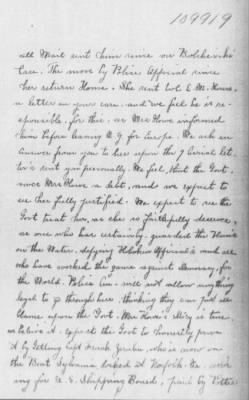 109919
all Mail sent him since our Bolsheviki
Case. The move by Police Official since
her return Home. She sent Col E. M. House,
a letter in your care. and we feel he is re-
sponsible, for this. as Mrs Howe informed
him before leaving N.Y. for Europe. We ask an
answer from you to hers upon the 7 Serial let-
ters sent you personally. We feel, that the Govt,
owes Mrs Howe a debt, and we expect to
see her fully justified. We expect to see the
Govt treat her, as she so faithfully deserves,
as one who has certainly guarded the
on the Water. defying Officials and all
who have worked the game against Democracy, for
the World. Police will not allow anything
legal to go through here thinking they can put all
blame upon the Govt. Mrs Howe's Story is true,
believe it. expect the Govt to honestly prove
it by getting Capt Frank who is now on
the Boat Sylvania docked at Norfolk Va. work
ing for U.S. Shipping Board, paid by